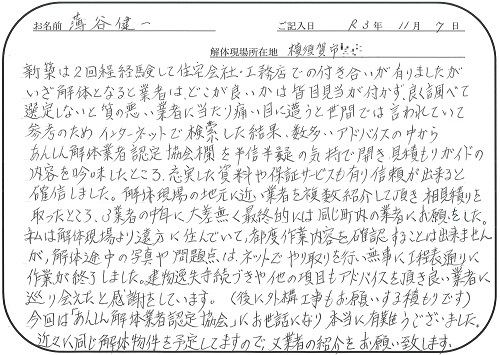 お名前 薄谷健一 ご記入日 R3年 11月 7日
解体現場所在地 横須賀市
新築は2回程経験して住宅会社・工務店での付き合いが有りましたが
いざ解体となると業者は、どこが良いかは皆目見当が付かず、良く調べて
選定しないと質の悪い業者に当たり痛い目に遭うと世間では言われていて
参考のため インターネットで検索した結果、数多いアドバイスの中から
あんしん解体業者認定協会欄を半信半疑の気持で開き、見積もりガイドの
内容を吟味したところ、充実した資料や保証サービスも有り信頼が出来ると
確信しました。解体現場の地元に近い業者を複数紹介して頂き相見積りを
取ったところ、3業者の内年に大差無く最終的には同じ町内の業者にお願をした。
私は解体現場より遠方に住んでいて、都度作業内容を確認することは出来ません
が、解体途中の写真や問題点は、ネットでやり取りを行い無事に工程表通りに
作業が終了しました。建物滅失手続づきや他の項目もアドバイスを頂き良い業者に
巡り会えたと感謝をしています。(後に外構工事もお願いする積もりです)
今回は「あんしん解体業者認定協会」にお世話になり本当に有難うございました。
近々に同じ解体物件を予定してますので、又業者の紹介をお願い致します。